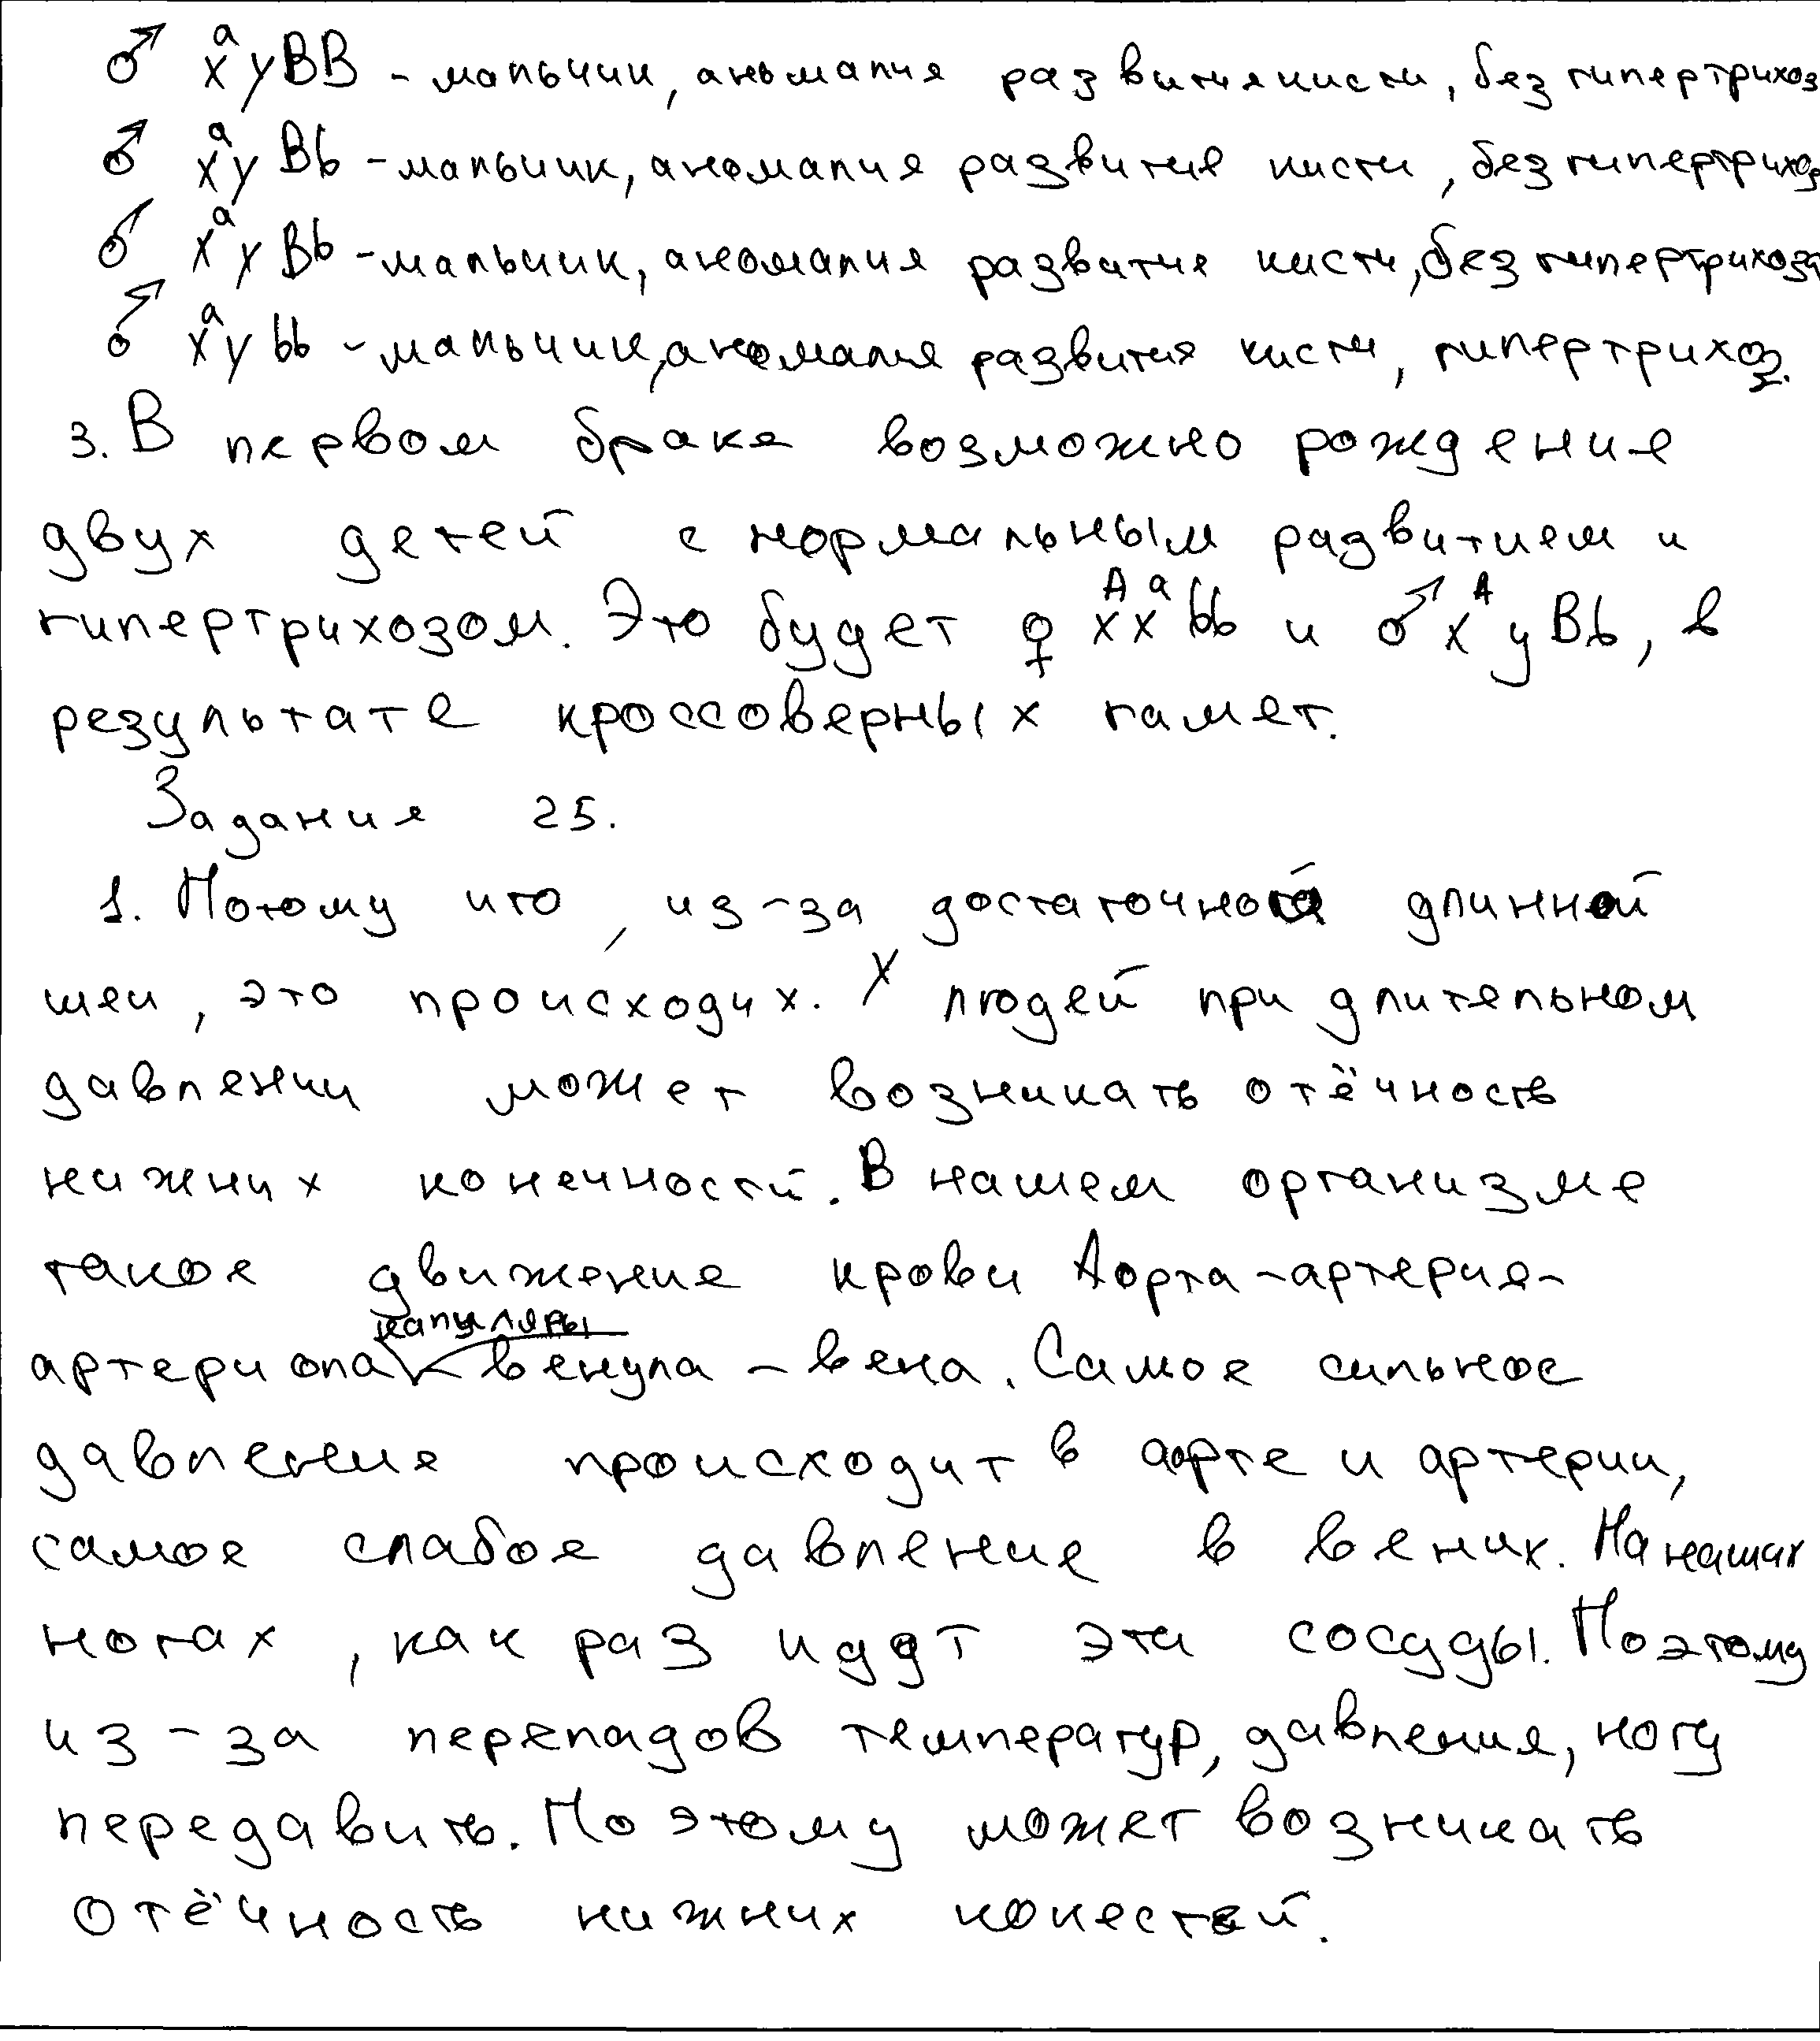 ♂ XᵃYBB - мальчик, аномалия развития кисти, без гипертрихоз
♂ XᵃY Bb - мальчик, аномалия развития кисти, без гипертрихоз
♂ XᵃY Bb - мальчик, аномалия развитие кисти, без гипертрихоза
♂ XᵃY bb - мальчик, аномалия развития кисти, гипертрихоз.
3. В первом браке возможно рождение
двух детей с нормальным развитием и
гипертрихозом. Это будет ♀ XᴬXᵃ bb и ♂ XᴬY Bb, в
результате кроссоверных гамет.
Задание 25.
1. Потому что, из-за достаточной длинной
шеи, это происходих. У людей при длительном
давлении может возникать отёчность
нижних конечностй. В нашем организме
такое движение крови Аорта-артерия-
капиляры
артериола венула - вена. Самое сильное
давление происходит в аорте и артерии,
самое слабое давление в вених. На наших
ногах, как раз идут эти сосуды. Поэтому
из-за перепадов температур, давления, ногу
передавить. Поэтому может возникать
отёчность нижних конестей.